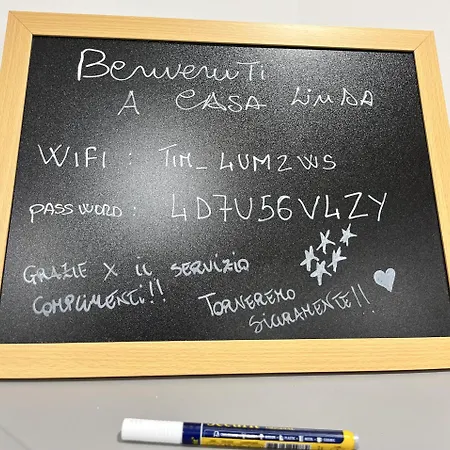 Benvenuti
A CASA LINDA
WIFI: TIM_4UM2WS
PASSWORD: 4D7U56V4ZY
GRAZIE X IL SERVIZIO
COMPLIMENTI!!
TORNEREMO
SICURAMENTE!!